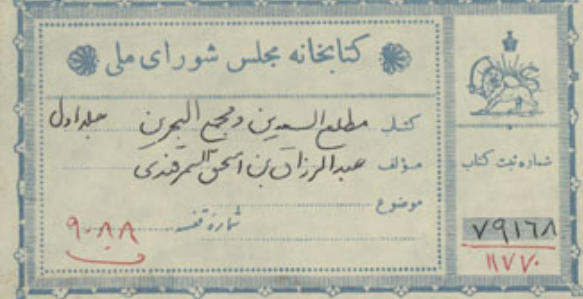 کتابخانه مجلس شورای ملی
کتاب مطلع السعدین ومجمع البحرین جلد اول
مؤلف عبدالرزاق بن اسحق السمرقندی
موضوع
شماره قفسه ۹۰۸۸
شماره ثبت کتاب
۷۹۱۶۸
۱۱۷۷۰